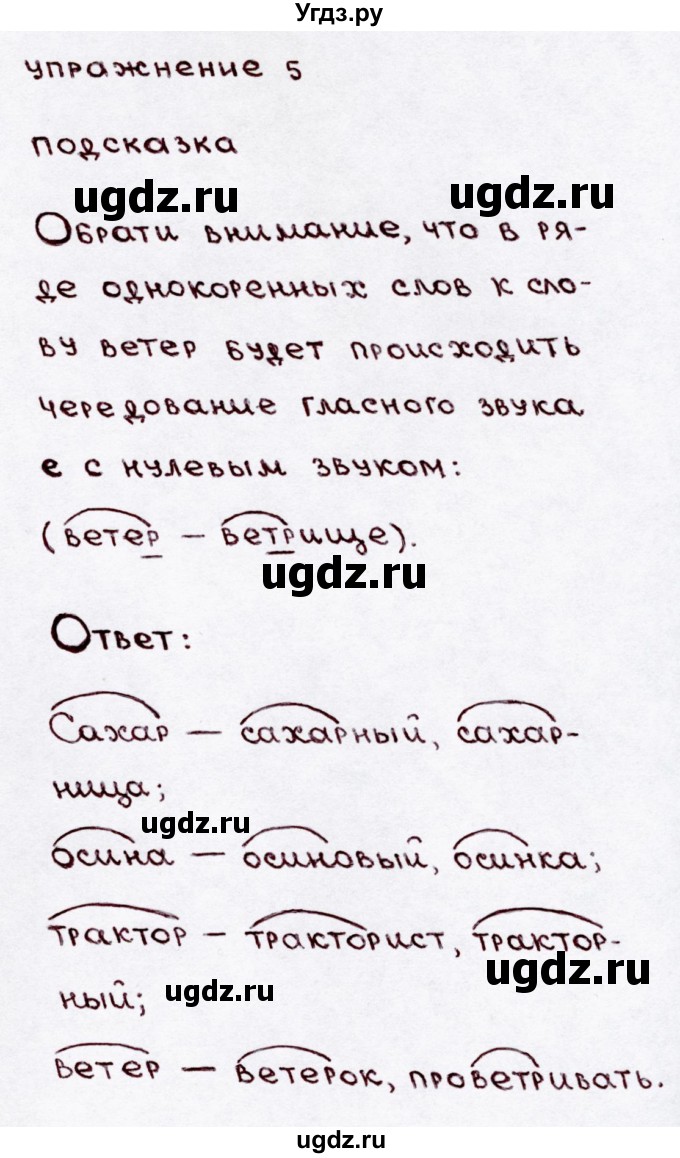 Угдз.ру
упражнение 5
подсказка
ugdz.ru ugdz.ru
Обрати внимание, что в ря-
де однокоренных слов к сло-
ву ветер будет происходить
чередование гласного звука
е с нулевым звуком:
(ветер – ветрище).
ugdz.ru
Ответ:
Сахар – сахарный, сахар-
ница;
ugdz.ru
осина – осиновый, осинка;
трактор – тракторист, трактор-
ugdz.ru
ный;
ugdz.ru
ветер – ветерок, проветривать.
ugdz.ru